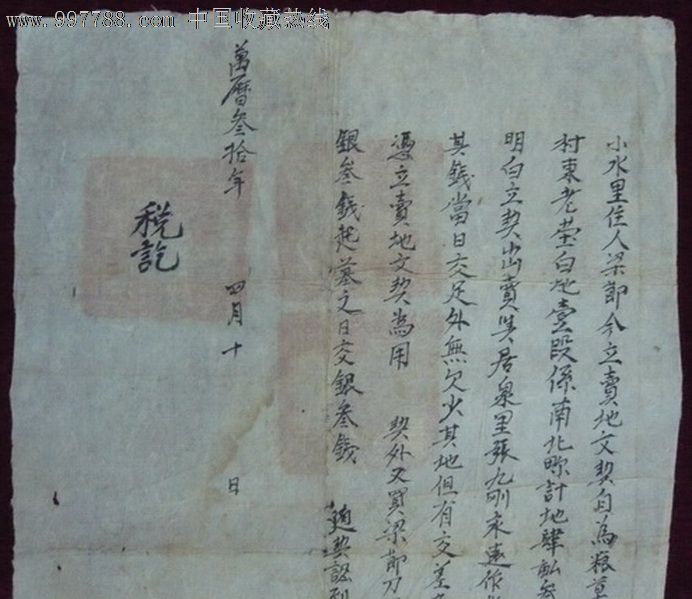 www.997788.com 中国收藏热线
小水里住人梁節今立賣地文契自為粮草
村東老塋白地壹段係南北畛計地肆畝叁
明白立契出賣與居泉里張九剛永遠作
其錢當日交足外無欠少其地但有交差
憑立賣地文契為用 契外又買梁節刀
銀叁錢起墓之日交銀叁錢 隨契認到
萬曆叁拾年 四月十 日
稅訖